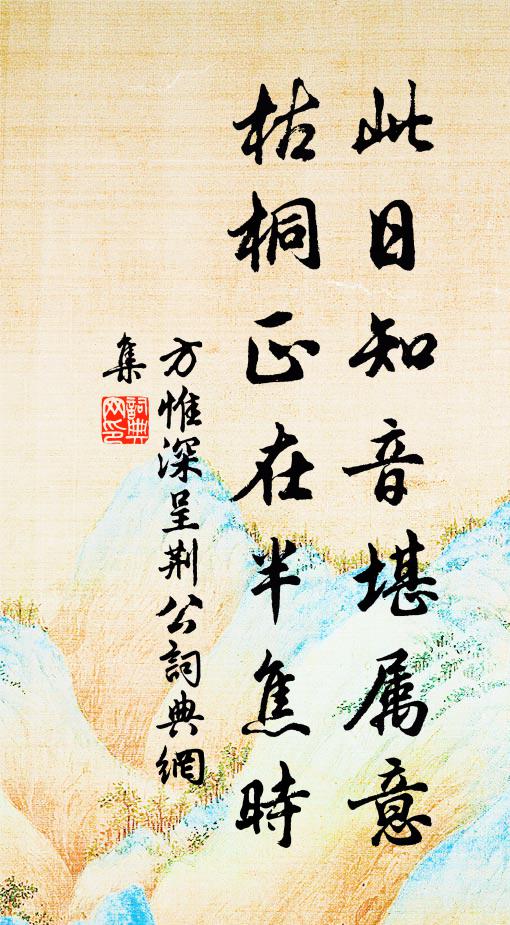 此日知音堪属意
枯桐正在半焦時
方惟深呈荆公詞典網
集
詞典網印